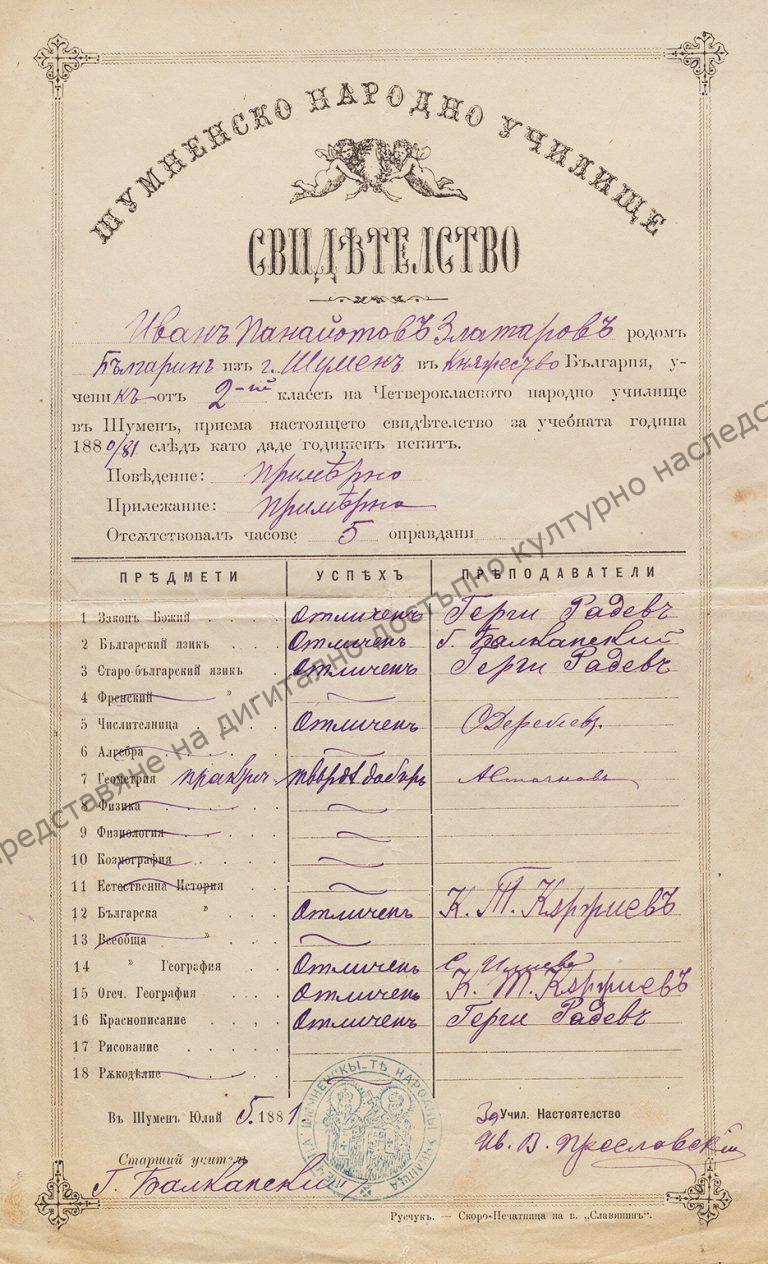 ШУМНЕНСКО НАРОДНО УЧИЛИЩЕ
СВИДѢТЕЛСТВО
Иванъ Панайотовъ Златаровъ родомъ
Българинъ изъ г. Шуменъ въ Княжество България, у-
ченикъ отъ 2-ий классъ на Четверокласното народно училище
въ Шуменъ, приема настоящето свидѣтелство за учебната година
1880/81 слѣдъ като даде годишенъ испитъ.
Поведение: примѣрно
Прилежание: примѣрно
Отсѫтствовалъ часове 5 оправдани
ПРѢДМЕТИ УСПѢХЪ ПРѢПОДАВАТЕЛИ
1 Законъ Божий . . . . Отличенъ Герги Радевъ
2 Български язикъ . . . Отличенъ Г. Балканский
3 Старо-български язикъ . Отличенъ Герги Радевъ
4 Френский "
5 Числителница . . Отличенъ
6 Алгебра . . . .
7 Геометрия твърдѣ добъръ
8 Физика . . . .
9 Физиология . . . .
10 Козмография . . . .
11 Естественна История . .
12 Българска " . . Отличенъ К. Т. Кърджиевъ
13 Всеобща " . .
14 " География . . Отличенъ С. Илиева
15 Отеч. География . . . Отличенъ К. Т. Кърджиевъ
16 Краснописание . . . . Отличенъ Герги Радевъ
17 Рисование . . . . .
18 Рѫкодѣлие . . . . .
Въ Шуменъ Юлий 5. 1881
За Учил. Настоятелство
Ив. В. Преславский
Старший учитель
Г. Балканский
Русчукъ. — Скоро-Печатница на в. „Славянинъ“.
представяне на дигитално достъпно културно наследство